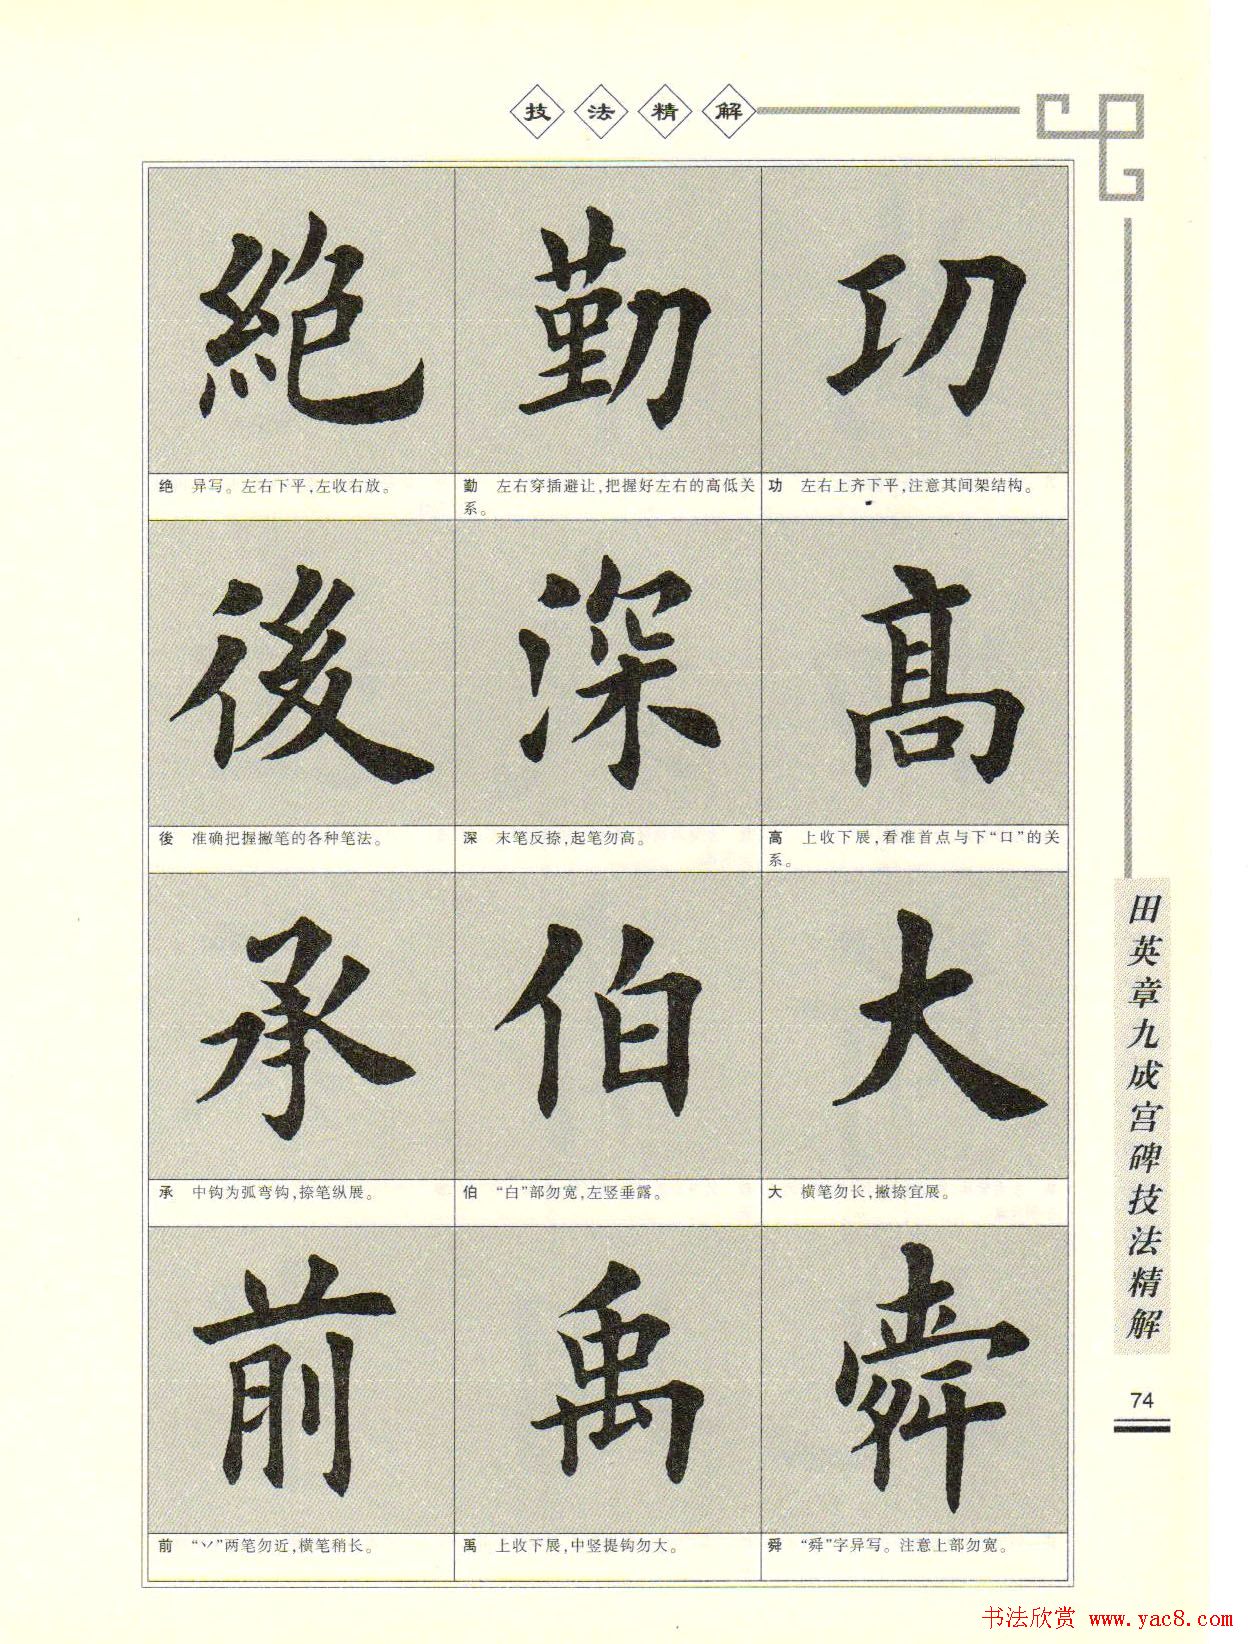 技法精解
絶 勤 功
绝 异写。左右下平,左收右放。
勤 左右穿插避让,把握好左右的高低关
系。
功 左右上齐下平,注意其间架结构。
後 深 高
後 准确把握撇笔的各种笔法。
深 末笔反捺,起笔勿高。
高 上收下展,看准首点与下“口”的关
系。
承 伯 大
承 中钩为弧弯钩,捺笔纵展。
伯 “白”部勿宽,左竖垂露。
大 横笔勿长,撇捺宜展。
前 禹 舜
前 “丷”两笔勿近,横笔稍长。
禹 上收下展,中竖提钩勿大。
舜 “舜”字异写。注意上部勿宽。
田英章九成宫碑技法精解
74
书法欣赏 www.yac8.com